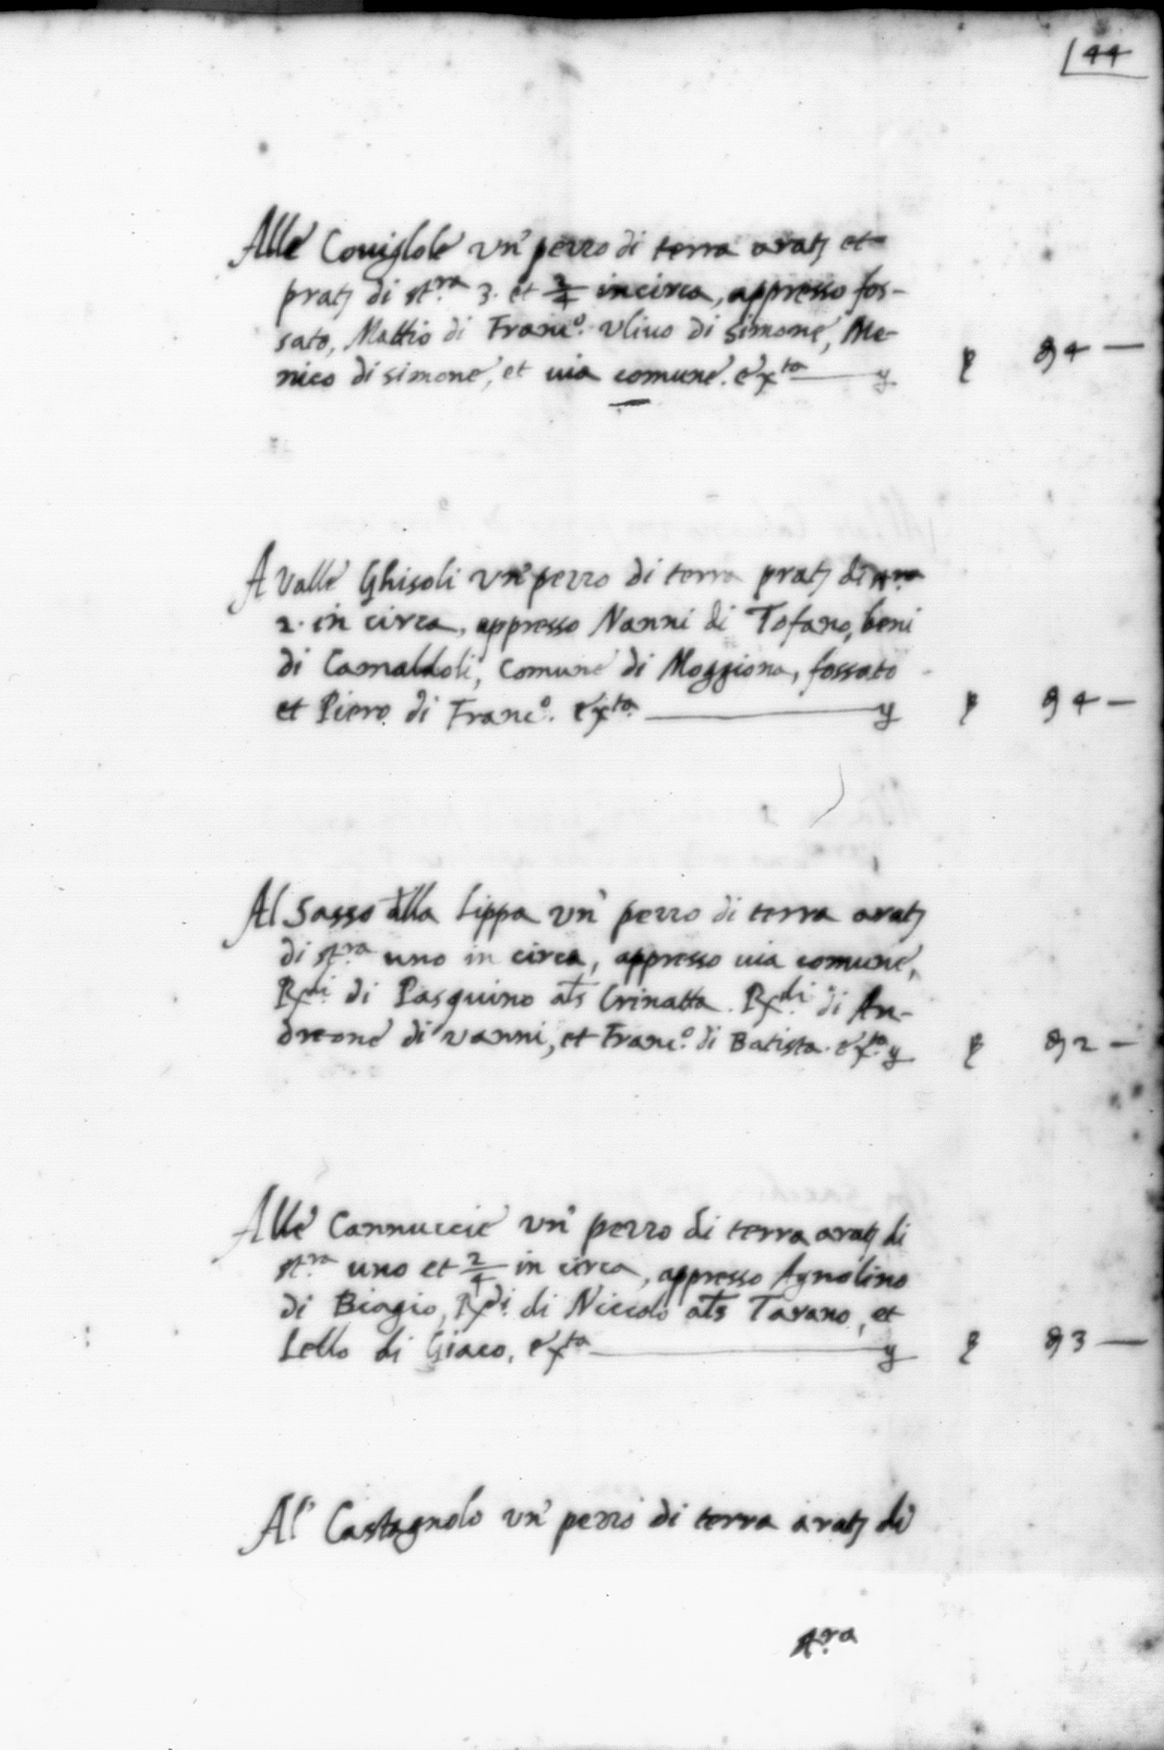 44
Alle Coviglole un' pezzo di terra arat; et
prat; di st.ra 3. et 3/4 in circa, appresso fos-
sato, Mattio di Franc.o Ulivo di simone, Me-
nico di simone, et via comune. e x.ta — ƷƷ 4 —
A valle Ghisoli un' pezzo di terra prat; di st.ra
2. in circa, appresso Nanni di Tofano, beni
di Camaldoli, Comune di Moggiona, fossato
et Piero di Franc.o. e x.ta — 4 —
Al Sasso alla Lippa un' pezzo di terra arat;
di st.ra uno in circa, appresso via comune,
Rx.di di Pasquino als Crinatta. Rx.di di An-
dreone di vanni, et Franc.o di Batista. e x.ta 2 —
Alle Cannuccie un' pezzo di terra arat; di
st.ra uno et 2/4 in circa, appresso Agnolino
di Biagio, Rx.di di Niccolo als Tarano, et
Lello di Giaco, e x.ta — 3 —
Al' Castagnolo un' pezzo di terra arat; di
st.ra